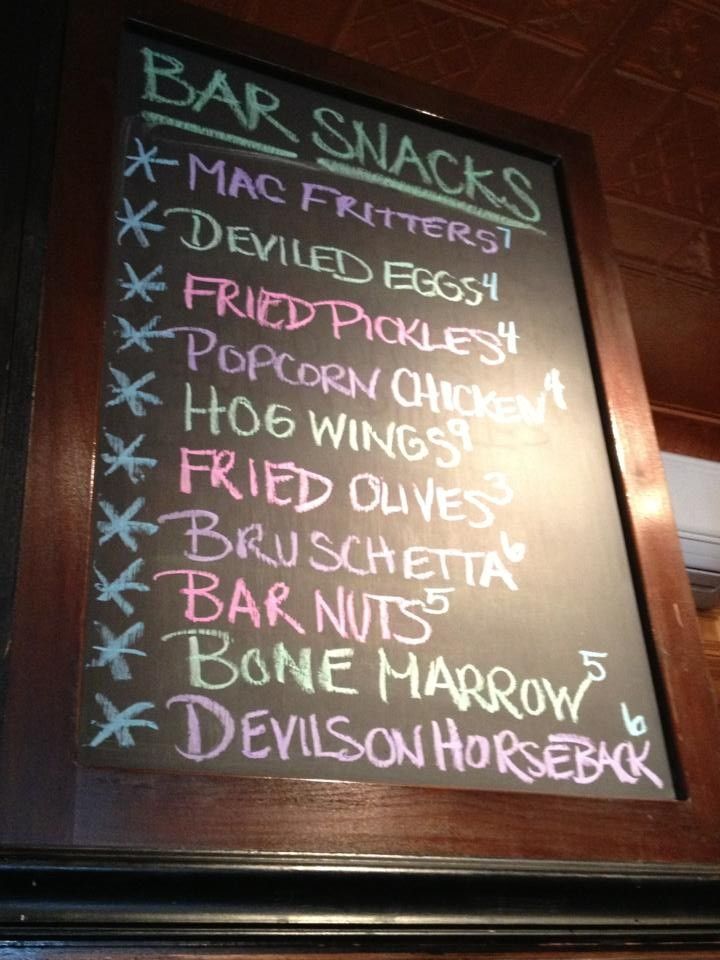 BAR SNACKS
* MAC FRITTERS 7
* DEVILED EGGS 4
* FRIED PICKLES 4
* POPCORN CHICKEN 4
* HOG WINGS 9
* FRIED OLIVES 3
* BRUSCHETTA 6
* BAR NUTS 5
* BONE MARROW 5
* DEVILS ON HORSEBACK 6